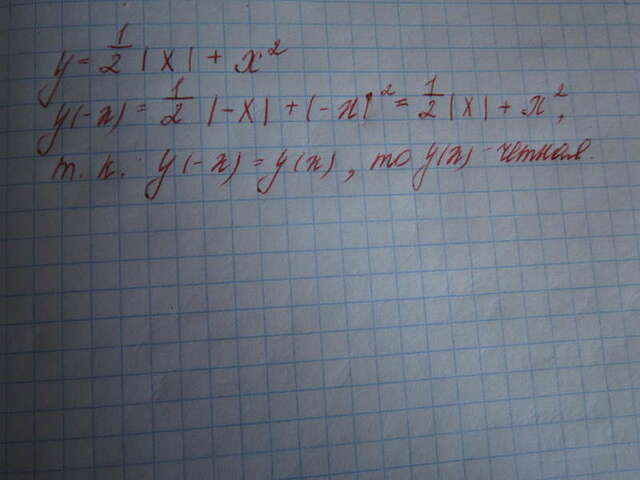 y = 1/2 |x| + x²
y(-x) = 1/2 |-x| + (-x)² = 1/2 |x| + x²,
т. к. y(-x) = y(x), то y(x) - четная.